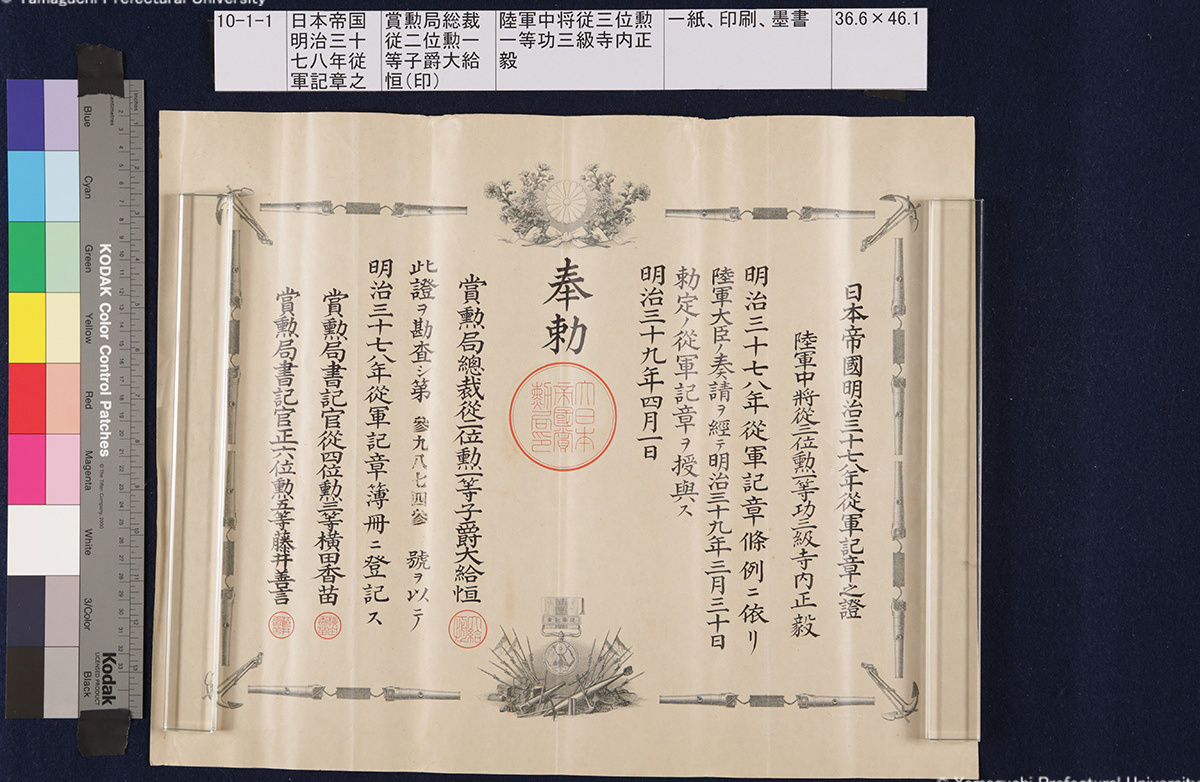 © Yamaguchi Prefectural University
10-1-1
日本帝国
明治三十
七八年従
軍記章之
賞勲局総裁
従二位勲一
等子爵大給
恒(印)
陸軍中将従三位勲
一等功三級寺内正
毅
一紙、印刷、墨書
36.6×46.1
日本帝國明治三十七八年從軍記章之證
陸軍中將從三位勲一等功三級寺内正毅
明治三十七八年從軍記章條例ニ依リ
陸軍大臣ノ奏請ヲ經テ明治三十九年三月三十日
勅定ノ從軍記章ヲ授與ス
明治三十九年四月一日
奉勅
大日本
帝國賞
勲局印
賞勲局總裁從二位勲一等子爵大給恒
此證ヲ勘査シ第參九八七四參號ヲ以テ
明治三十七八年從軍記章簿冊ニ登記ス
賞勲局書記官從四位勲三等横田香苗
賞勲局書記官正六位勲五等藤井善言
Blue
Cyan
Green
Yellow
Red
Magenta
White
3/Color
Black
KODAK Color Control Patches
© The Tiffen Company, 2000
Kodak
LICENSED PRODUCT
inches
centimetres
© Yamaguchi Prefectural University